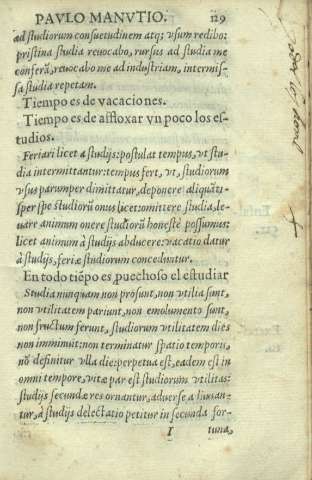 PAVLO MANVTIO. 129
ad studiorum consuetudinem atq; vsum redibo:
pristina studia reuocabo, rursus ad studia me
conferã, reuocabo me ad industriam, intermis-
sa studia repetam.
Tiempo es de vacaciones.
Tiempo es de afloxar vn poco los es-
tudios.
Feriari licet a studijs: postulat tempus, vt stu-
dia intermittantur: tempus fert, vt, studiorum
vsus parumper dimittatur, deponere aliquãtis-
per spe studiorũ onus licet: omittere studia, le-
uare animum onere studiorũ honestè possumus:
licet animum à studijs abducere: vacatio datur
à studijs, feriæ studiorum conceduntur.
En todo tiẽpo es puechoso el estudiar
Studia nunquam non prosunt, non vtilia sunt,
non vtilitatem pariunt, non emolumento sunt,
non fructum ferunt, studiorum vtilitatem dies
non imminuit: non terminatur spatio temporis,
nõ definitur vlla die: perpetua est, eadem est in
omni tempore, vitæ par est studiorum vtilitas:
studijs secundæ res ornantur, aduersæ
tur, à studijs delectatio petitur in secunda for-
I tuna,